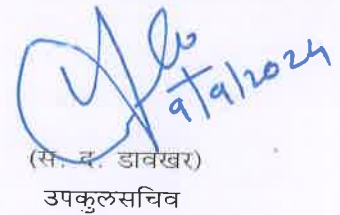 9/9/2024
(स. द. डावखर)
उपकुलसचिव